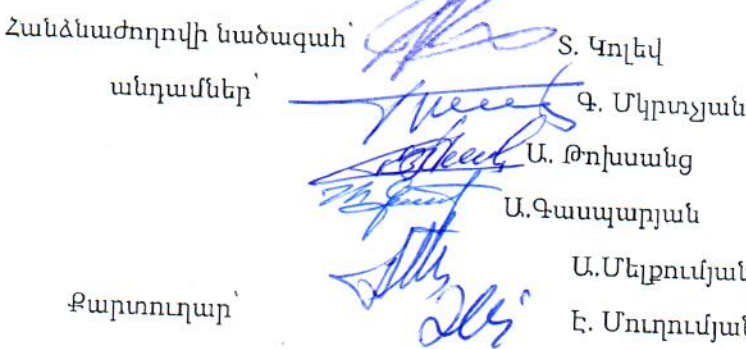 Հանձնաժողովի նախագահ՝ Տ. Կոլեվ
անդամներ՝ Գ. Մկրտչյան
Ա. Թոխսանց
Ա.Գասպարյան
Ա.Մելքումյան
Քարտուղար՝ Է. Մուղումյան